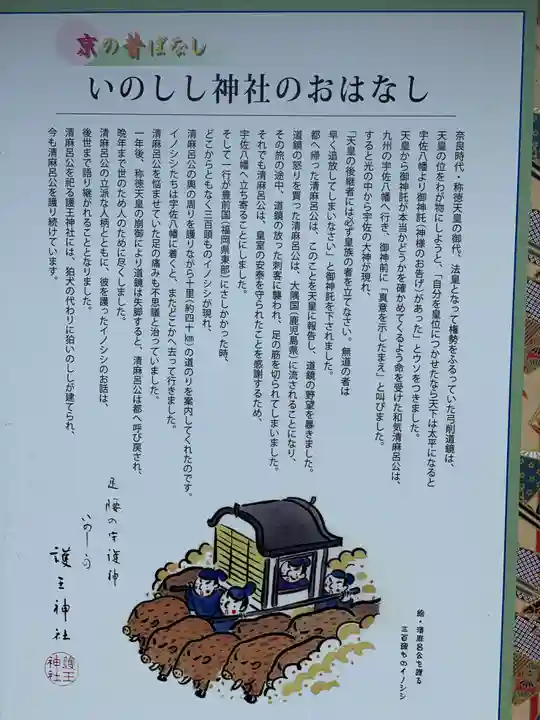 京の昔ばなし
いのしし神社のおはなし
奈良時代・称徳天皇の御代。法皇となって権勢をふるっていた弓削道鏡は、
天皇の位をわが物にしようと、「自分を皇位につかせたなら天下は太平になると
宇佐八幡より御神託(神様のお告げ)があった」とウソをつきました。
天皇から御神託が本当かどうかを確かめてくるよう命を受けた和気清麻呂公は、
九州の宇佐八幡へ行き、御神前に「真意を示したまえ」と叫びました。
すると光の中から宇佐の大神が現れ、
「天皇の後継者には必ず皇族の者を立てなさい。無道の者は
早く追放してしまいなさい」と御神託を下されました。
都へ帰った清麻呂公は、このことを天皇に報告し、道鏡の野望を暴きました。
道鏡の怒りを買った清麻呂公は、大隅国(鹿児島県)に流されることになり、
その旅の途中、道鏡の放った刺客に襲われ、足の筋を切られてしまいました。
それでも清麻呂公は、皇室の安泰を守られたことを感謝するため、
宇佐八幡へ立ち寄ることにしました。
そして一行が豊前国(福岡県東部)にさしかかった時、
どこからともなく三百頭ものイノシシが現れ、
清麻呂公の輿の周りを護りながら十里(約四十㎞)の道のりを案内してくれたのです。
イノシシたちは宇佐八幡に着くと、またどこかへ去って行きました。
清麻呂公を悩ませていた足の痛みも不思議と治っていました。
一年後、称徳天皇の崩御により道鏡は失脚すると、清麻呂公は都へ呼び戻され、
晩年まで世のため人のために尽くしました。
清麻呂公の立派な人柄とともに、彼を護ったイノシシのお話は、
後世まで語り継がれることとなりました。
清麻呂公を祀る護王神社には、狛犬の代わりに狛いのししが建てられ、
今も清麻呂公を護り続けています。
足腰の守護神
いのしし
護王神社
護王神社
絵・清麻呂公を護る
三百頭ものイノシシ